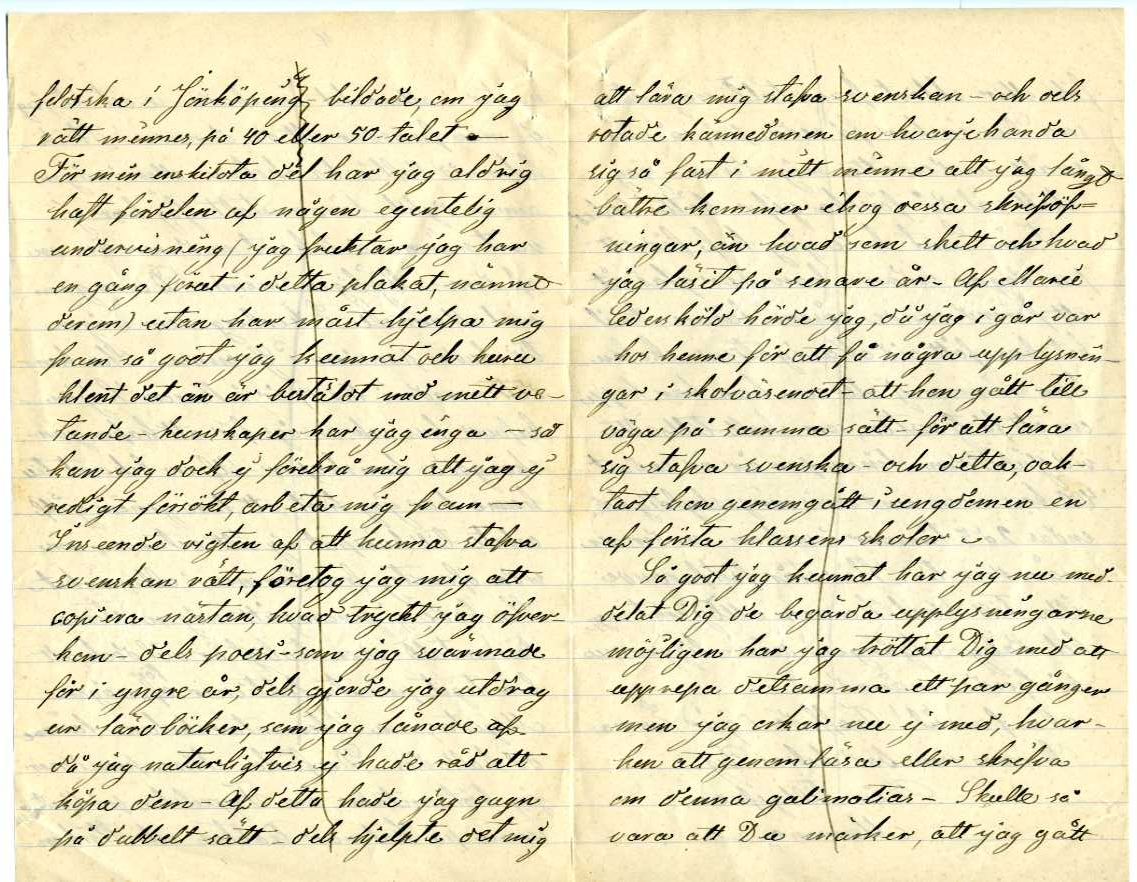 feldtska i Jönköping bildade, om jag
rätt minnes, på 40 eller 50 talet. —
För min enskilota del har jag aldrig
haft fördelen af någon egentelig
undervisning (jag fruktar jag har
en gång förut i detta plakat, nämnt
derom) utan har måst hjelpa mig
fram så godt jag kunnat och huru
klent det än är bestäldt med mitt ve-
tande - kunskaper har jag inga - så
kan jag dock ej förebrå mig att jag ej
redigt försökt, arbeta mig fram —
Inseende vigten af att kunna stafva
svenskan rätt, företog jag mig att
copiera nästan, hvad tryckt jag öfver-
kom - dels poesi - som jag svärmade
för i yngre år, dels gjorde jag utdrag
ur läroböcker, som jag lånade af
då jag naturligtvis ej hade råd att
köpa dem - Af detta hade jag gagn
på dubbelt sätt - dels hjelpte det mig
att lära mig stafva svenskan - och dels
rotade kännedomen om hvarjehanda
sig så fast i mitt minne att jag långt
bättre kommer ihog dessa skriföf=
ningar, än hvad som skett och hvad
jag läsit på senare år - Af Marie
Cedersköld hörde jag, då jag i går var
hos henne för att få några upplysnin-
gar i skolväsendet - att hon gått till
väga på samma sätt - för att lära
sig stafva svenska - och detta, oak-
tadt hon genomgått i ungdomen en
af första klassens skolor
Så godt jag kunnat har jag nu med-
delat Dig de begärda upplysningarne
möjligen har jag tröttat Dig med att
upprepa detsamma ett par gånger
men jag orkar nu ej med, hvar-
ken att genomläsa eller skrifva
om denna galimatias - Skulle så
vara att Du märker, att jag gått